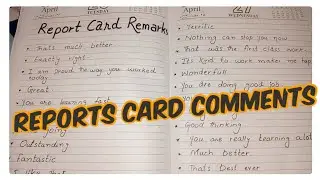 April
Report Card Remarks
• That's much better
• Exactly right
• I am proud the way you worked
today
• Great
• You are learning fast
Outstanding
Fantastic
April
WEDNESDAY
• Terrific
• Nothing can stop you now
• That was the first class work
• It's kind to work makes me
• Wonderful!
• You are doing good job
• Good thinking
• You are really learning a lot
• Much better
• That's best ever
REPORTS CARD COMMENTS